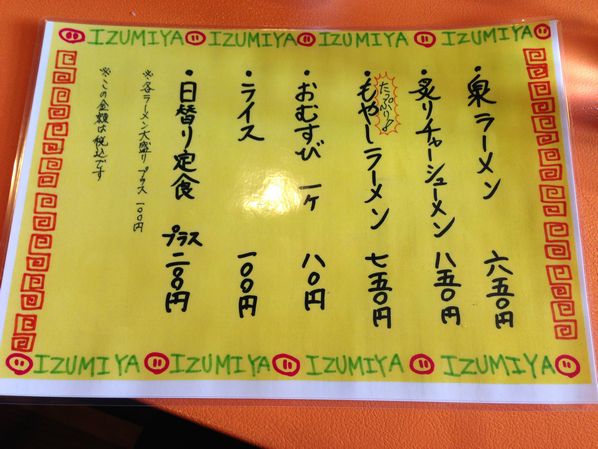 IZUMIYA IZUMIYA IZUMIYA IZUMIYA
・泉ラーメン 六五〇円
・炙りチャーシューメン 八五〇円
たっぷり♪
・もやしラーメン 七五〇円
・おむすび 一ケ 八〇円
・ライス 一〇〇円
・日替り定食 プラス 二〇〇円
※各ラーメン大盛り プラス 一〇〇円
※この金額は税込です
IZUMIYA IZUMIYA IZUMIYA IZUMIYA